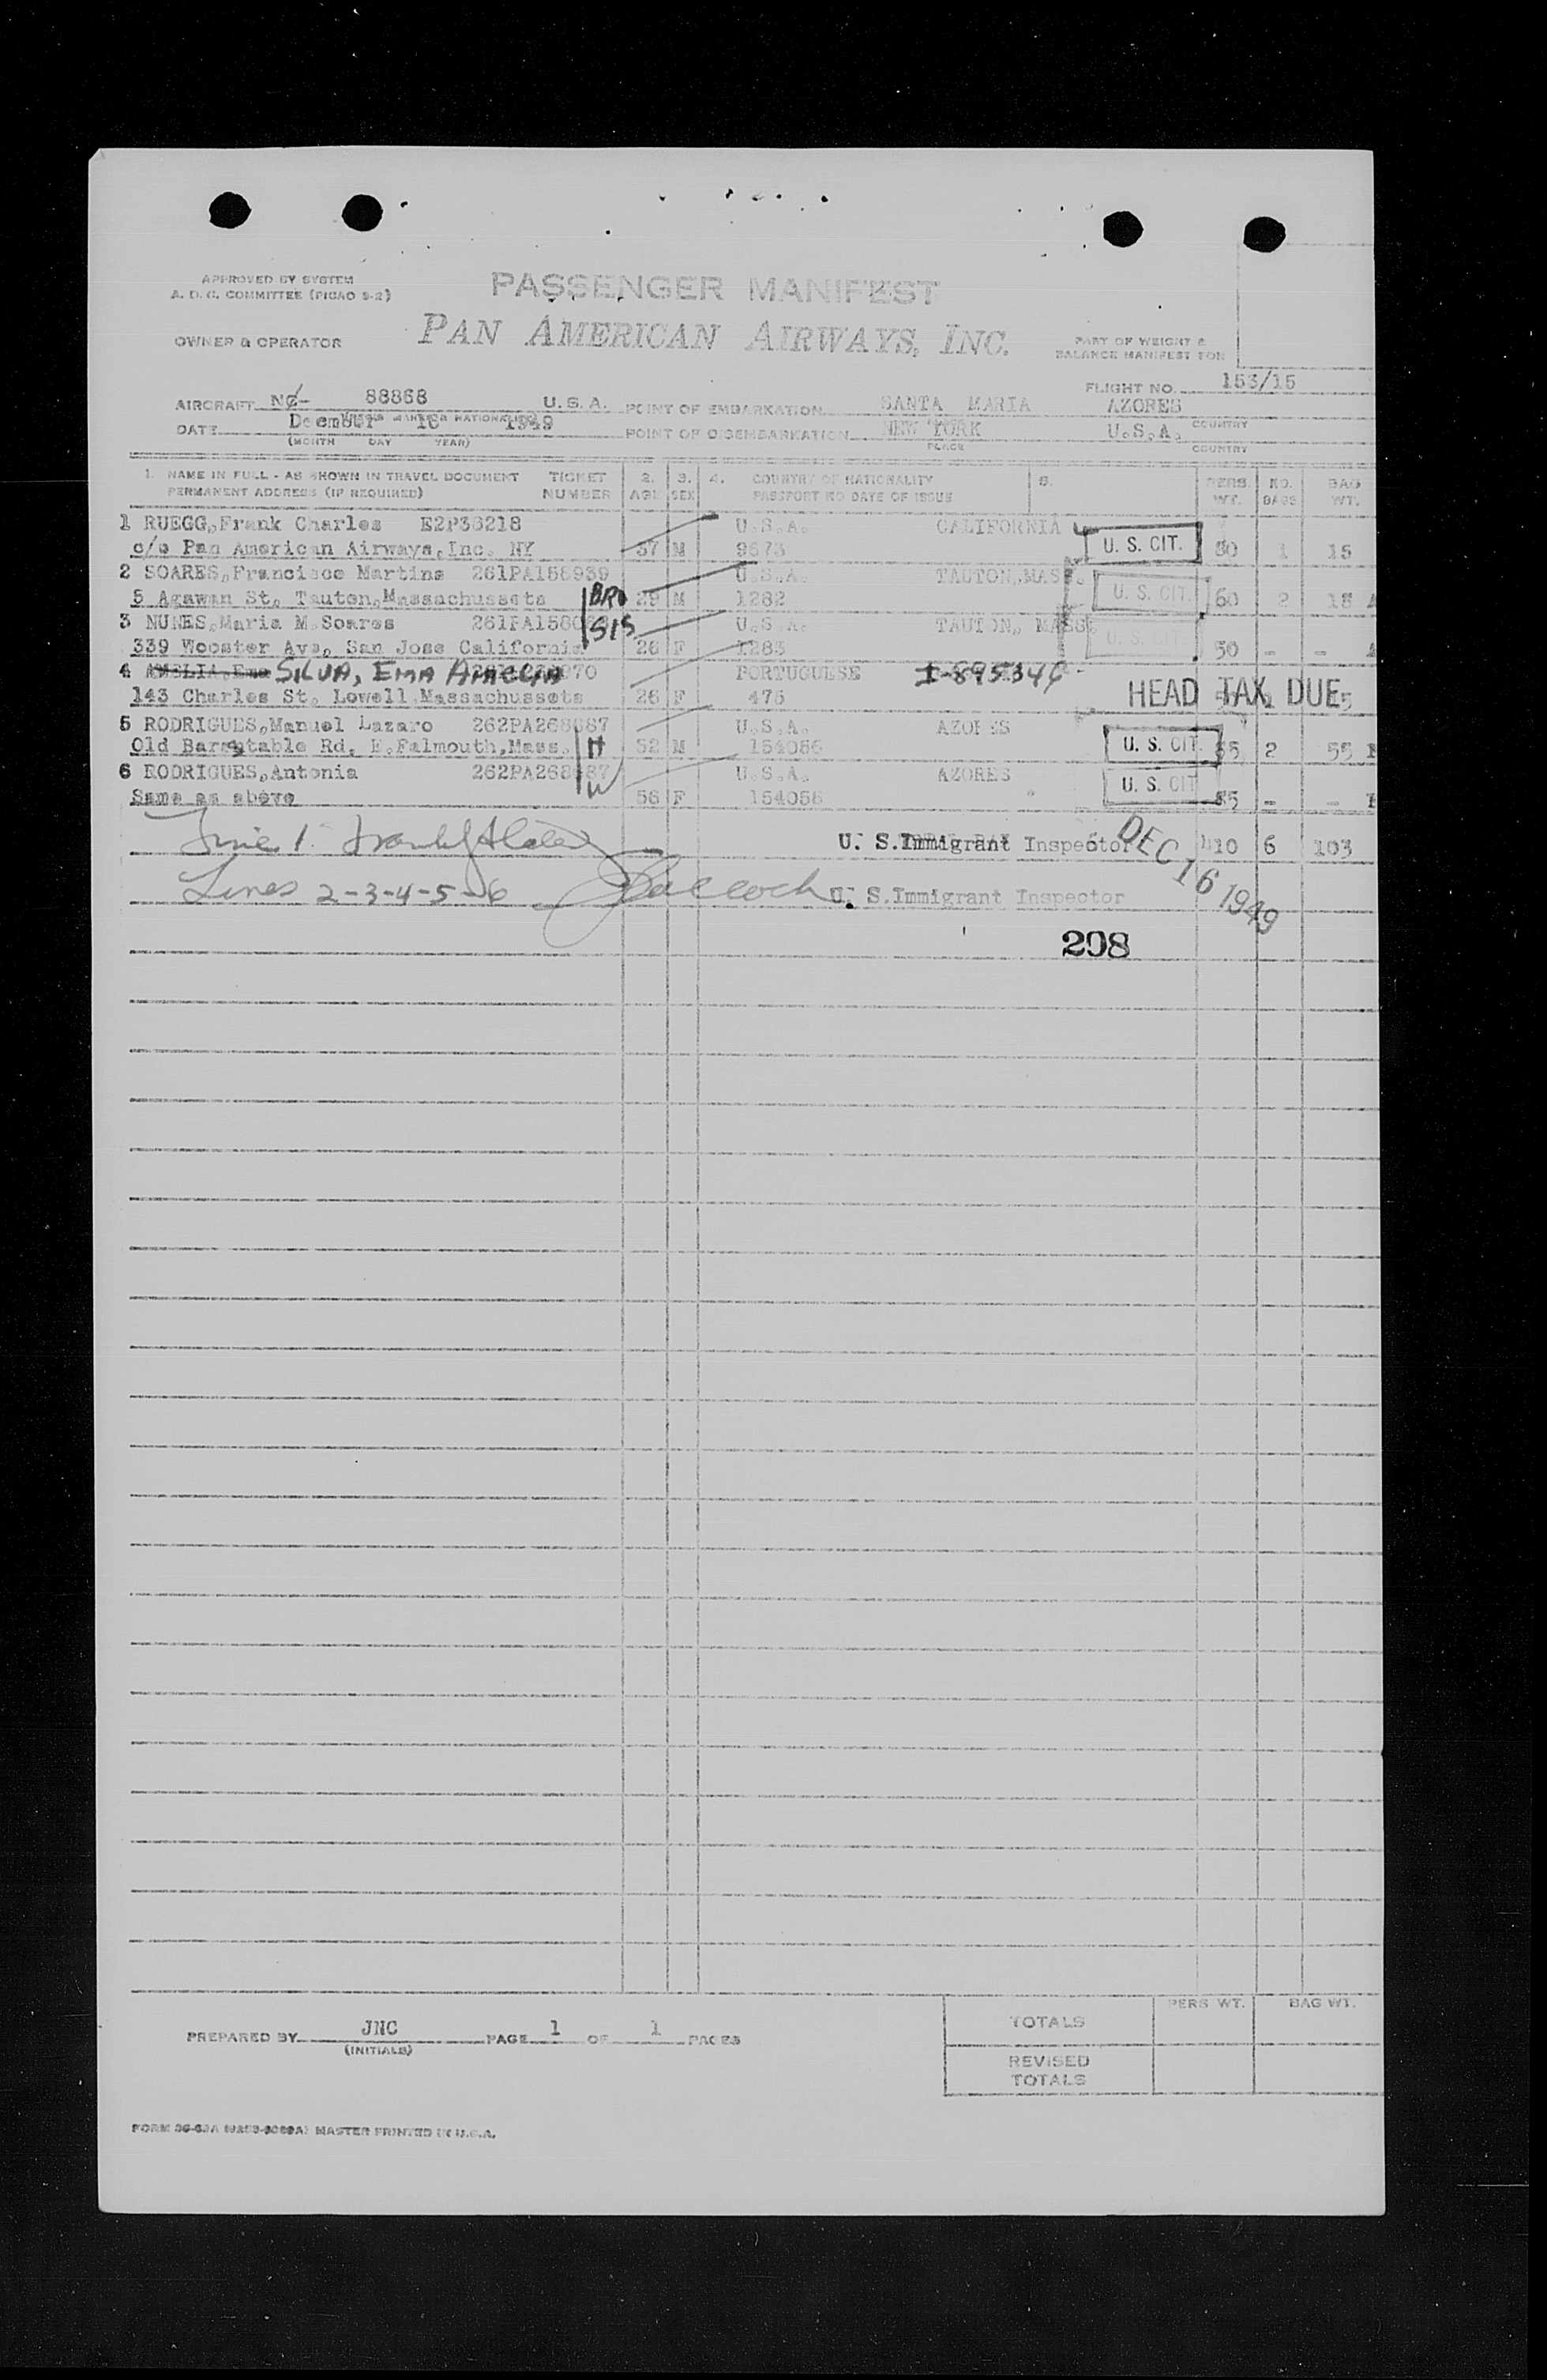 APPROVED BY SYSTEM
A. D. C. COMMITTEE (PICAO 9-2)
PASSENGER MANIFEST
OWNER & OPERATOR
PAN AMERICAN AIRWAYS, INC.
PART OF WEIGHT &
BALANCE MANIFEST FOR
FLIGHT NO. 153/15
AIRCRAFT 88868 U.S.A. POINT OF EMBARKATION SANTA MARIA AZORES
DATE December 16 1949 POINT OF DISEMBARKATION NEW YORK U.S.A. COUNTRY
(MONTH DAY YEAR) PLACE COUNTRY
1. NAME IN FULL - AS SHOWN IN TRAVEL DOCUMENT TICKET 2. 3. 4. COUNTRY OF NATIONALITY 5. PERS NO. BAG
PERMANENT ADDRESS (IF REQUIRED) NUMBER AGE SEX PASSPORT NO DATE OF ISSUE WT. BAGS WT.
1 RUEGG,Frank Charles E2P36218 U.S.A. CALIFORNIA
c/o Pan American Airways,Inc. NY 37 M 9673 U. S. CIT. 80 1 15
2 SOARES,Francisco Martins 261PA158939 U.S.A. TAUTON,MASS.
5 Agawan St, Tauton,Massachussets BRO 29 M 1282 U. S. CIT. 60 2 18
3 NUNES,Maria M.Soares SIS U.S.A. TAUTON, MASS.
339 Wooster Ave, San Jose California 26 F 1283 U. S. CIT. 50 - -
4 AMELIA,Ema SILVA, EMA AMELIA PORTUGUESE I-895346
143 Charles St, Lowell Massachussets 26 F 475 HEAD TAX DUE
5 RODRIGUES,Manuel Lazaro 262PA268687 U.S.A. AZORES
Old Barnstable Rd, E.Falmouth,Mass. H 52 M 154056 U. S. CIT. 2 55
6 RODRIGUES,Antonia U.S.A. AZORES
Same as above W 56 F 154056 U. S. CIT - -
Line 1. U. S.Immigrant Inspector DEC 16 1949 6 103
Lines 2-3-4-5-6 U. S.Immigrant Inspector
208
PERS WT. BAG WT.
TOTALS
PREPARED BY JNC PAGE 1 OF 1 PAGES
(INITIALS)
REVISED
TOTALS
MASTER PRINTED IN U.S.A.